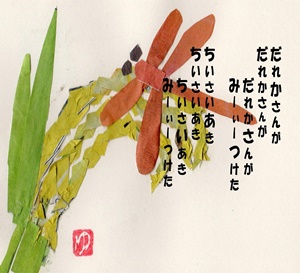 だれかさんが
だれかさんが
だれかさんが
みーぃーつけた
ちいさいあき
ちいさいあき
ちいさいあき
みーぃーつけた
ゆ